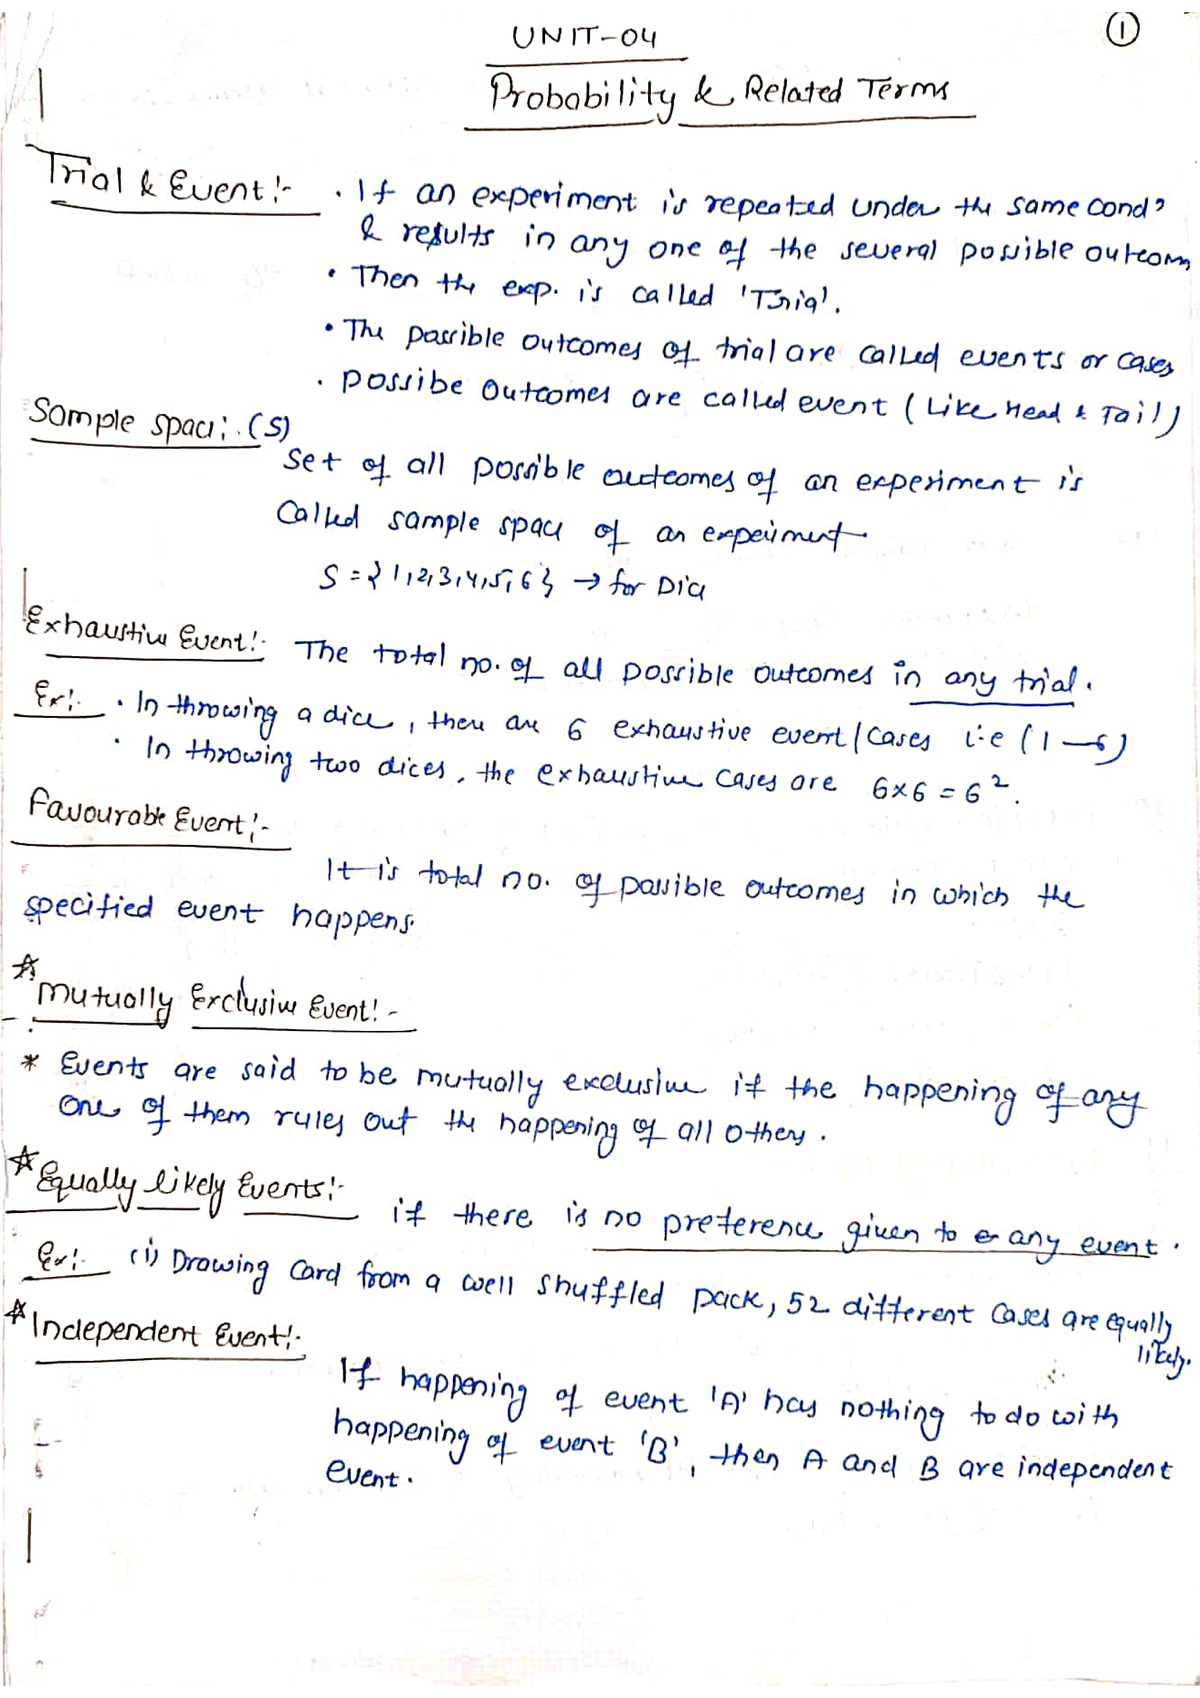 ①
UNIT-04
Probability & Related Terms
Trial & Event:-
• If an experiment is repeated under the same condn
& results in any one of the several possible outcom
• Then the exp. is called 'Trial'.
• The possible outcomes of trial are called events or cases
• possibe outcomes are called event (Like Head & Tail)
Sample space:. (S)
Set of all possible outcomes of an experiment is
Called sample space of an experiment.
S = {1,2,3,4,5,6} → for Dice
Exhaustive Event:- The total no. of all possible outcomes in any trial.
Ex:- • In throwing a dice, there are 6 exhaustive event/cases i.e (1—6)
• In throwing two dices, the exhaustive cases are 6×6 = 6².
Favourable Event:-
It is total no. of possible outcomes in which the
specified event happens.
☆ Mutually Exclusive Event:-
* Events are said to be mutually exclusive if the happening of any
one of them rules out the happening of all others.
☆ Equally likely Events:- if there is no preference given to any event.
Ex:- (i) Drawing Card from a well shuffled pack, 52 different cases are equally
likely.
☆ Independent Event:-
If happening of event 'A' has nothing to do with
happening of event 'B', then A and B are independent
event.